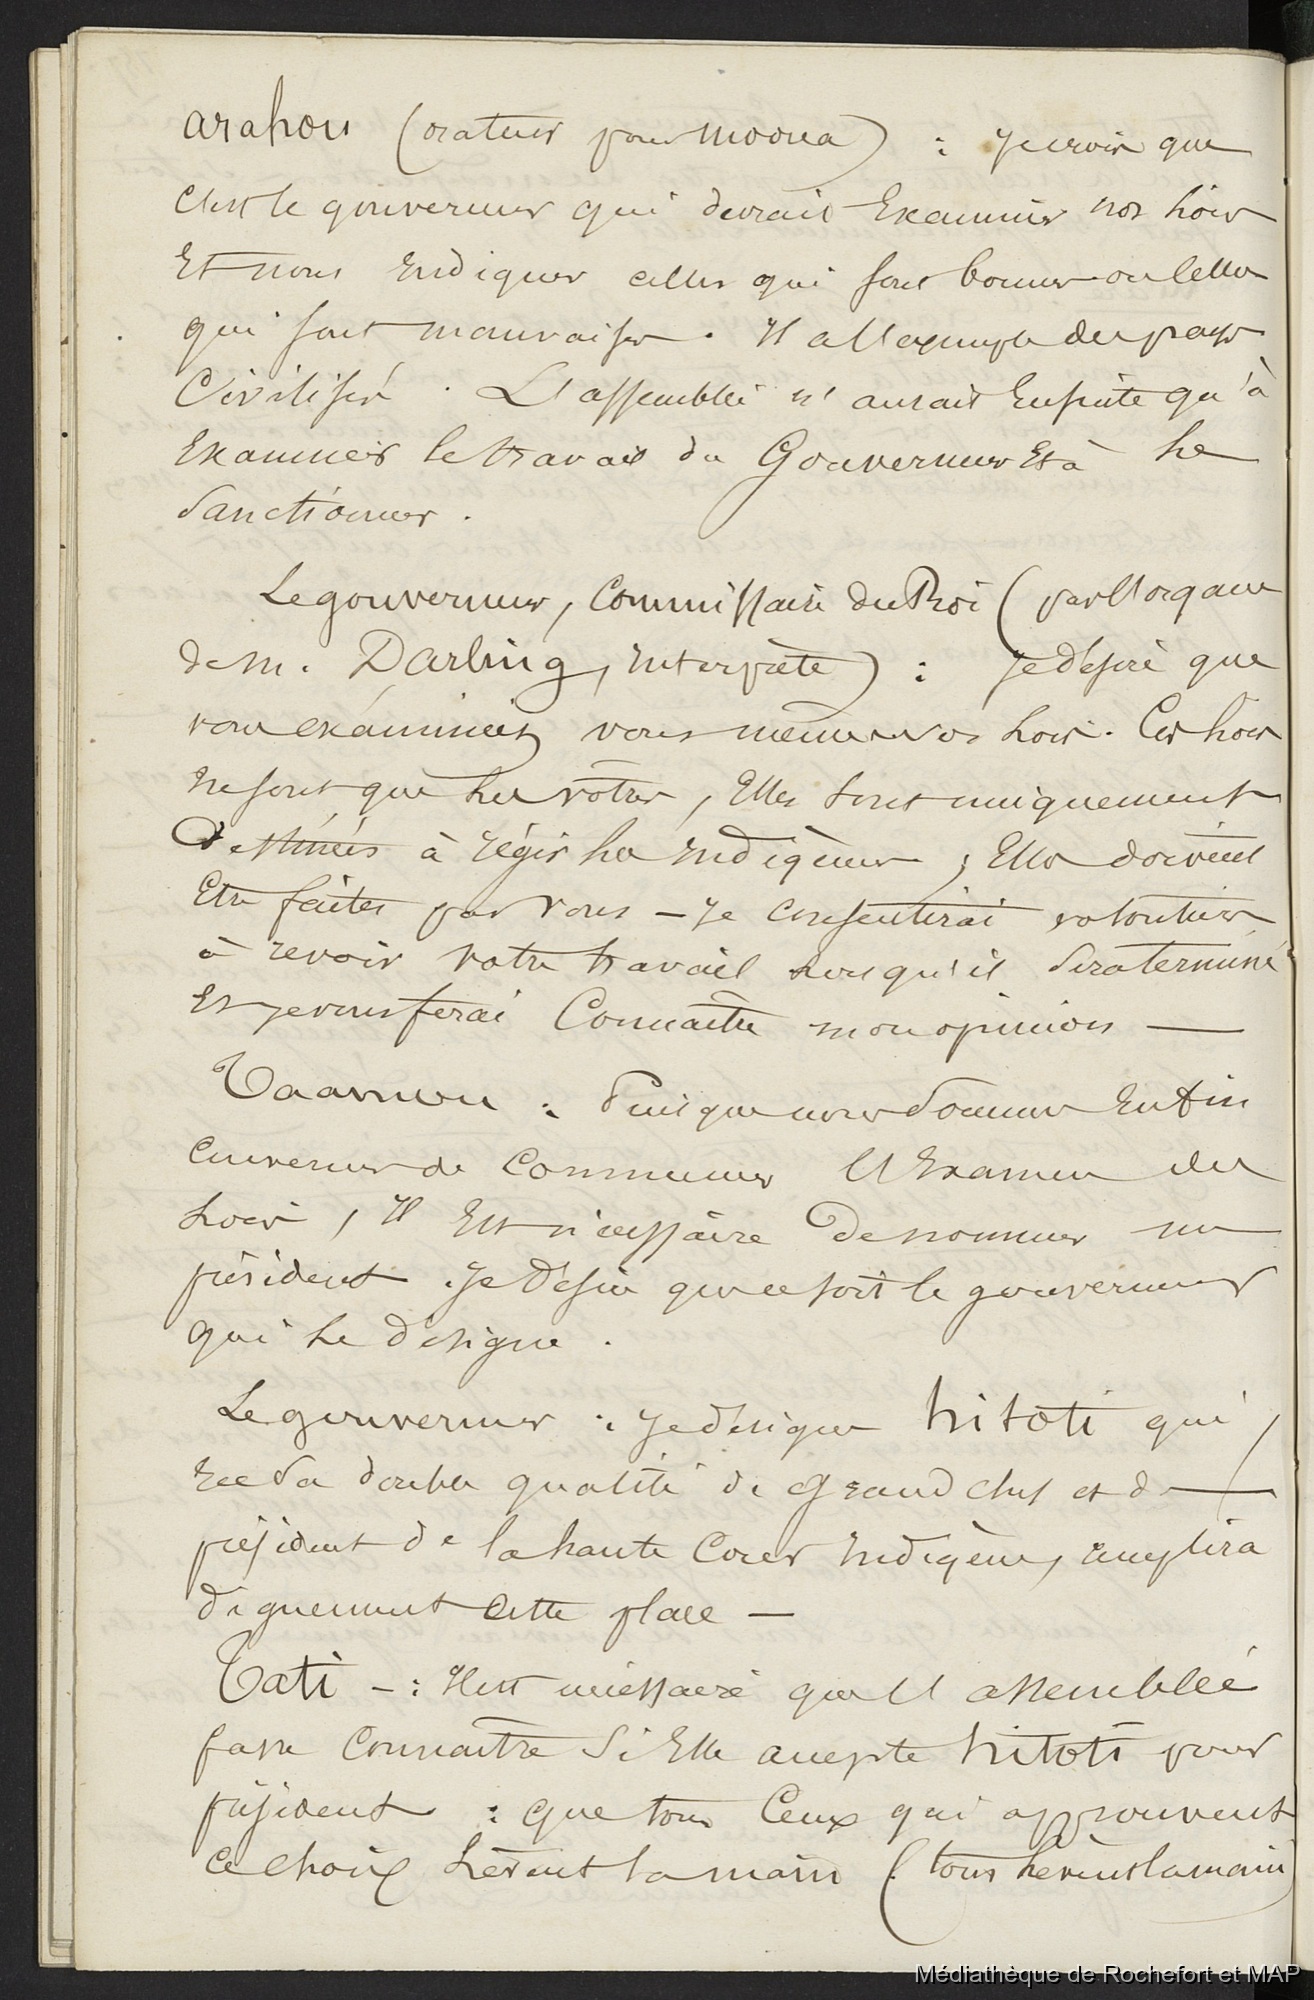 arahou (orateur pour moorea) : je crois que
c'est le gouverneur qui devrait Examiner nos Lois
Et nous Indiquer celles qui sont bonnes ou celles
qui sont mauvaises. Il a l'exemple des pays
Civilisés. L'assemblée n'aurait Ensuite qu'à
Examiner le travail du Gouverneur Et à le
Sanctionner.
Le gouverneur, Commissaire du Roi (par l'organe
de M. Darling, Interprète) : je désire que
vous examiniez vous mêmes vos Lois. Ces Lois
ne sont que les vôtres, Elles sont uniquement
Destinées à régir les Indigènes, Elles doivent
Etre faites par vous — je consentirai volontiers
à revoir votre travail lorsqu'il sera terminé
Et je vous ferai Connaître mon opinion —
Taamou : Puisque nous sommes Enfin
convenus de Commencer l'Examen des
Lois, Il Est nécessaire De nommer un
président. je Désire que ce soit le gouverneur
qui le désigne.
Le gouverneur : je désigne hitoti qui
En sa double qualité de grand chef et de
président de la haute Cour Indigène, remplira
dignement cette place —
Tati — : Il est nécessaire que l'assemblée
fasse Connaître Si Elle accepte hitoti pour
président : que tous Ceux qui approuvent
ce choix Lèvent la main (tous Lèvent la main)
Médiathèque de Rochefort et MAP